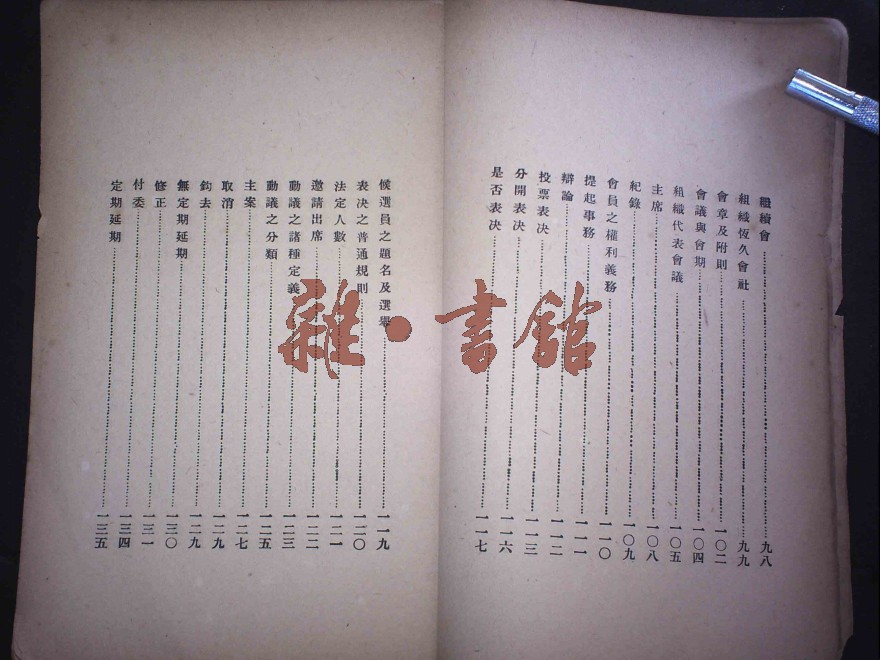 繼續會……九八
組織恆久會社……九九
會章及附則……一〇二
會議與會期……一〇四
組織代表會議……一〇五
主席……一〇八
紀錄……一〇九
會員之權利義務……一一〇
提起事務……一一一
辯論……一一二
投票表决……一一三
分開表决……一一六
是否表决……一一七
候選員之題名及選舉……一一九
表决之普通規則……一二〇
法定人數……一二一
邀請出席……一二二
動議之諸種定義……一二三
動議之分類……一二五
主案……一二七
取消……一二九
鈎去……一二九
無定期延期……一三〇
修正……一三一
付委……一三四
定期延期……一三五
雜·書館